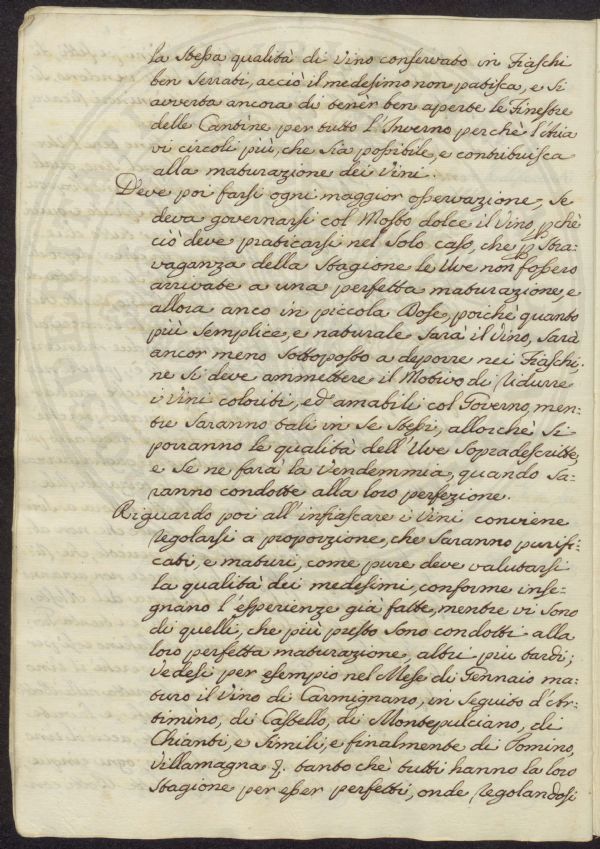 la stessa qualità di Vino conservato in Fiaschi
ben serrati, acciò il medesimo non patisca, e si
avverta ancora di tener ben aperte le Finestre
delle Cantine per tutto l'Inverno perchè l'Aria
vi circoli più, che sia possibile, e contribuisca
alla maturazione dei Vini.
Deve poi farsi ogni maggior osservazione, se
deva governarsi col Mosto dolce il Vino, pchè
ciò deve praticarsi nel solo caso, che p stra-
vaganza della Stagione le Uve non fossero
arrivate a una perfetta maturazione, e
allora anco in piccola Dose, poichè quanto
più semplice, e naturale sarà il Vino, sarà
ancor meno sottoposto a deporre nei Fiaschi.
ne si deve ammettere il Motivo di ridurre
i Vini coloriti, ed amabili col Governo, men-
tre saranno tali in se stessi, allorchè si
porranno le qualità dell'Uve sopradescritte,
e se ne farà la Vendemmia, quando sa-
ranno condotte alla loro perfezione.
Riguardo poi all'infiascare i Vini conviene
regolarsi a proporzione, che saranno purifi-
cati, e maturi, come pure deve valutarsi
la qualità dei medesimi, conforme inse-
gnano l'esperienze già fatte, mentre vi sono
di quelli, che più presto sono condotti alla
loro perfetta maturazione, altri più tardi;
Vedesi per esempio nel Mese di Gennaio ma-
turo il Vino di Carmignano, in seguito d'Ar-
timino, di Castello, di Montepulciano, di
Chianti, e simili, e finalmente di Pomino,
Villamagna &. tanto chè tutti hanno la loro
Stagione per esser perfetti, onde regolandosi